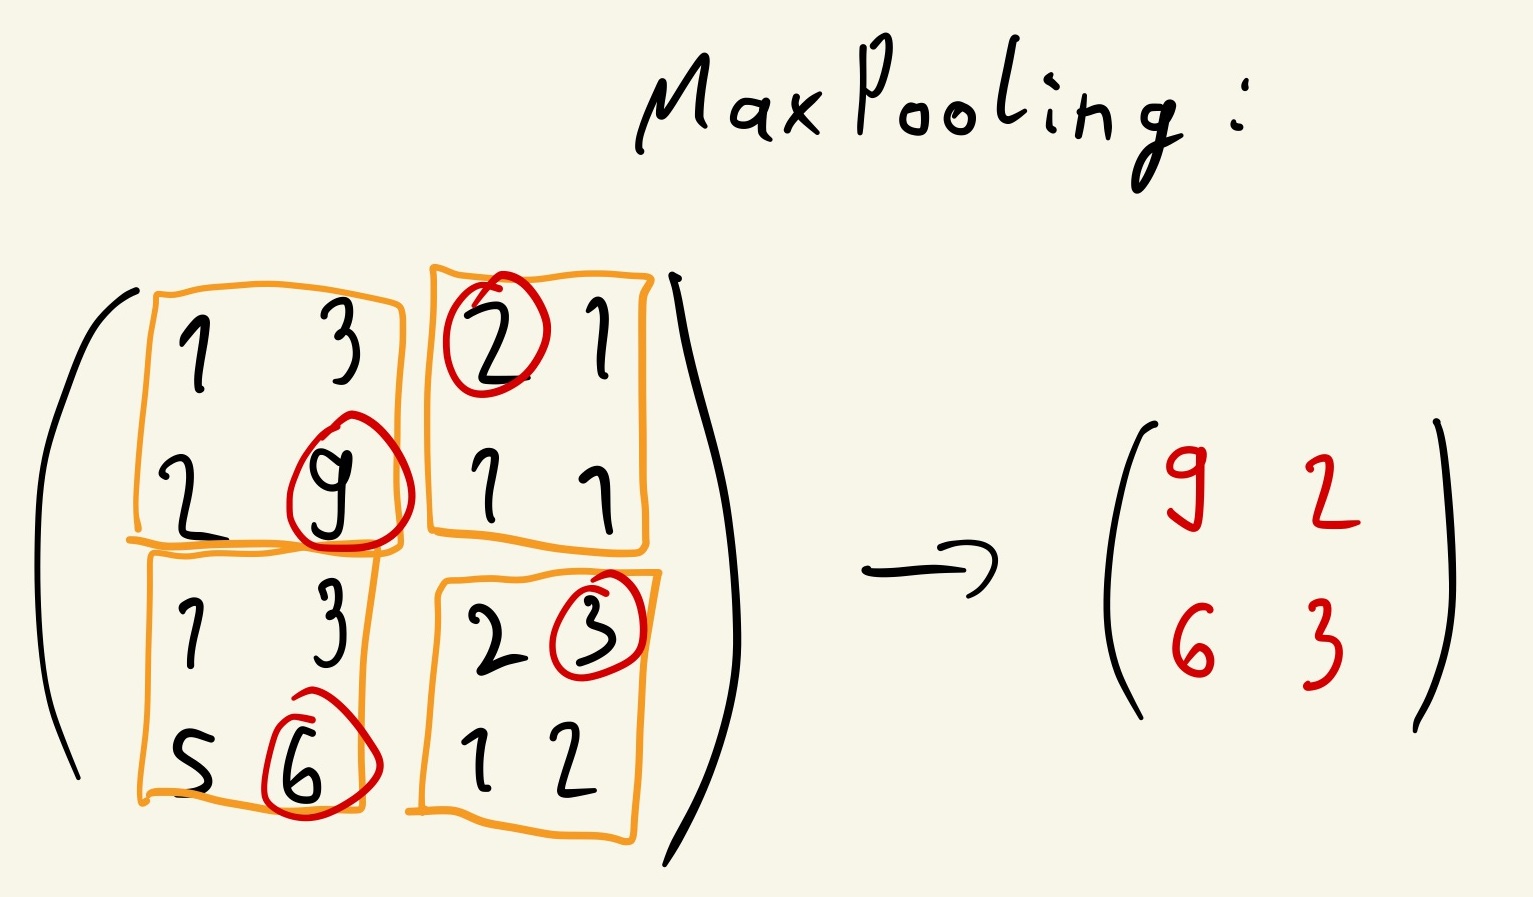 MaxPooling:
1 3 2 1
2 9 1 1
1 3 2 3
5 6 1 2
→
9 2
6 3